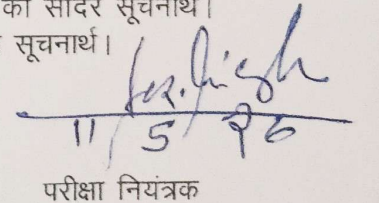 को सादर सूचनार्थ।
सूचनार्थ।
11/5/26
परीक्षा नियंत्रक